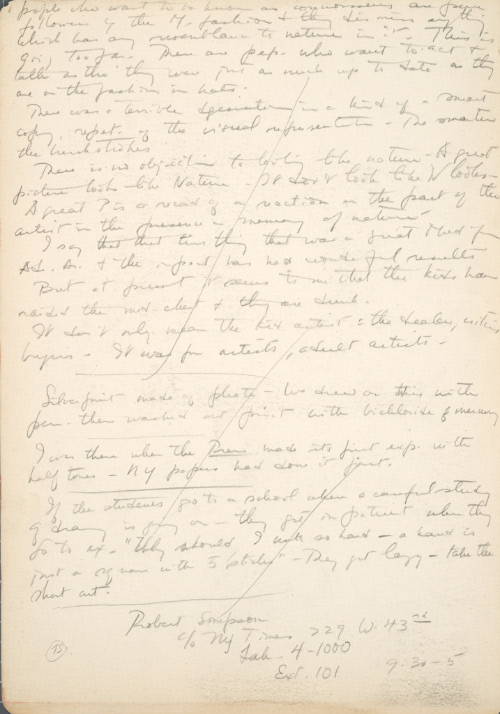 people who want to be known as connoisseurs are
followers of the M. fashion & they
which has any resemblance to nature in it. This is
going too far. There are peop. who want to act &
talk as tho' they were just as much up to date as they
are on the fashion in hats.
There was a terrible degeneration in a kind of a smart
copy, repet. of the visual representation - The smarter
the brushstrokes
There is no objection to looking like nature - A great
picture looks like Nature - It don't look like N looks -
A great P is a record of a reaction on the part of the
artist in the presence or memory of nature.
I say that this thing that was a great Med for
& the import has had wonderful results
But at present it seems to me that the kids have
raided the med. chest & they are drunk.
It don't only mean the kid artist: the dealer, critics
buyers - It was for artists, adult artists -
Silverprint made of photo - We drew on this with
pen - then washed out print with bichloride of mercury
I was there when the Press made its first exp. with
half tones - NY papers had done it first.
If the students go to a school where a careful study
of drawing is going on - they get impatient when they
go to ex - "Why should I work so hard - a hand is
just a square with 5 'sticks' - They get lazy - take the
short cut.
Robert Simpson
c/o NY Times 229 W. 43rd
Lak 4-1000
Ext. 101 9:30-5
75